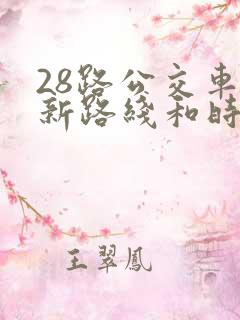 28路公交車
新路綫和時
王翠鳳